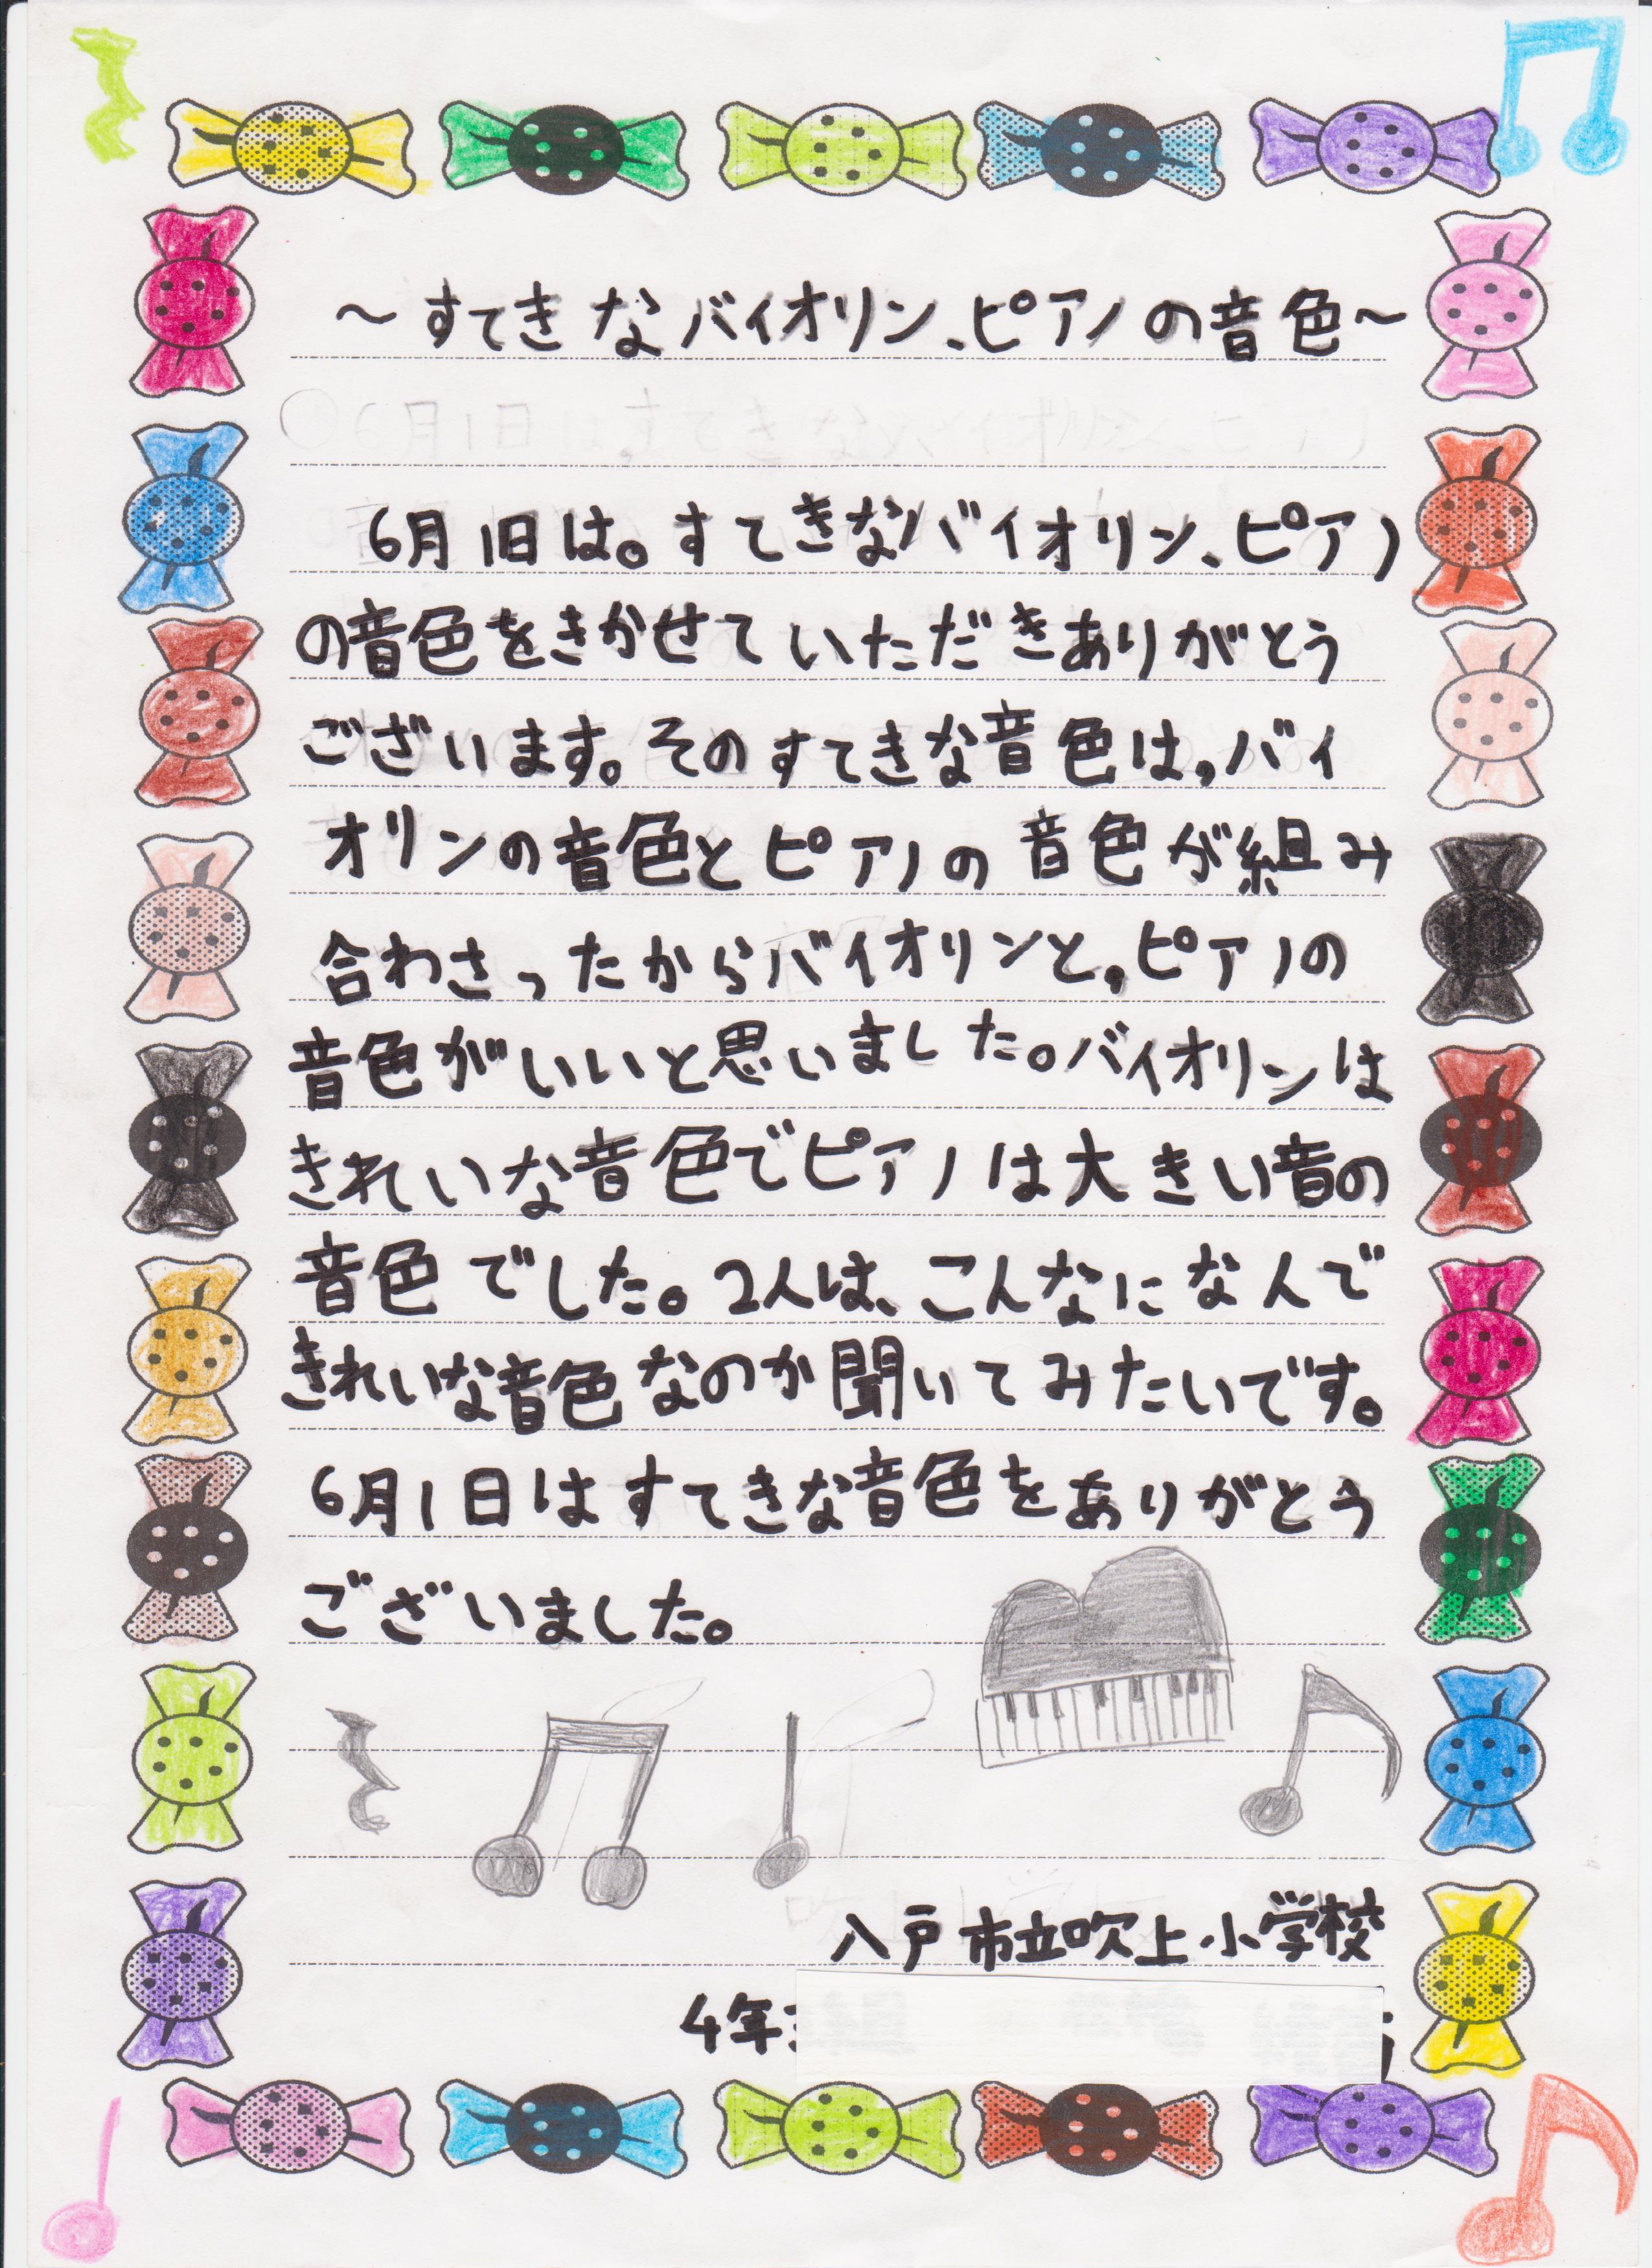 ～すてきなバイオリン、ピアノの音色～
6月1日は。すてきなバイオリン、ピアノ
の音色をきかせていただきありがとう
ございます。そのすてきな音色は,バイ
オリンの音色とピアノの音色が組み
合わさったからバイオリンと,ピアノの
音色がいいと思いました。バイオリンは
きれいな音色でピアノは大きい音の
音色でした。2人は、こんなになんで
きれいな音色なのか聞いてみたいです。
6月1日はすてきな音色をありがとう
ございました。
八戸市立吹上小学校
4年